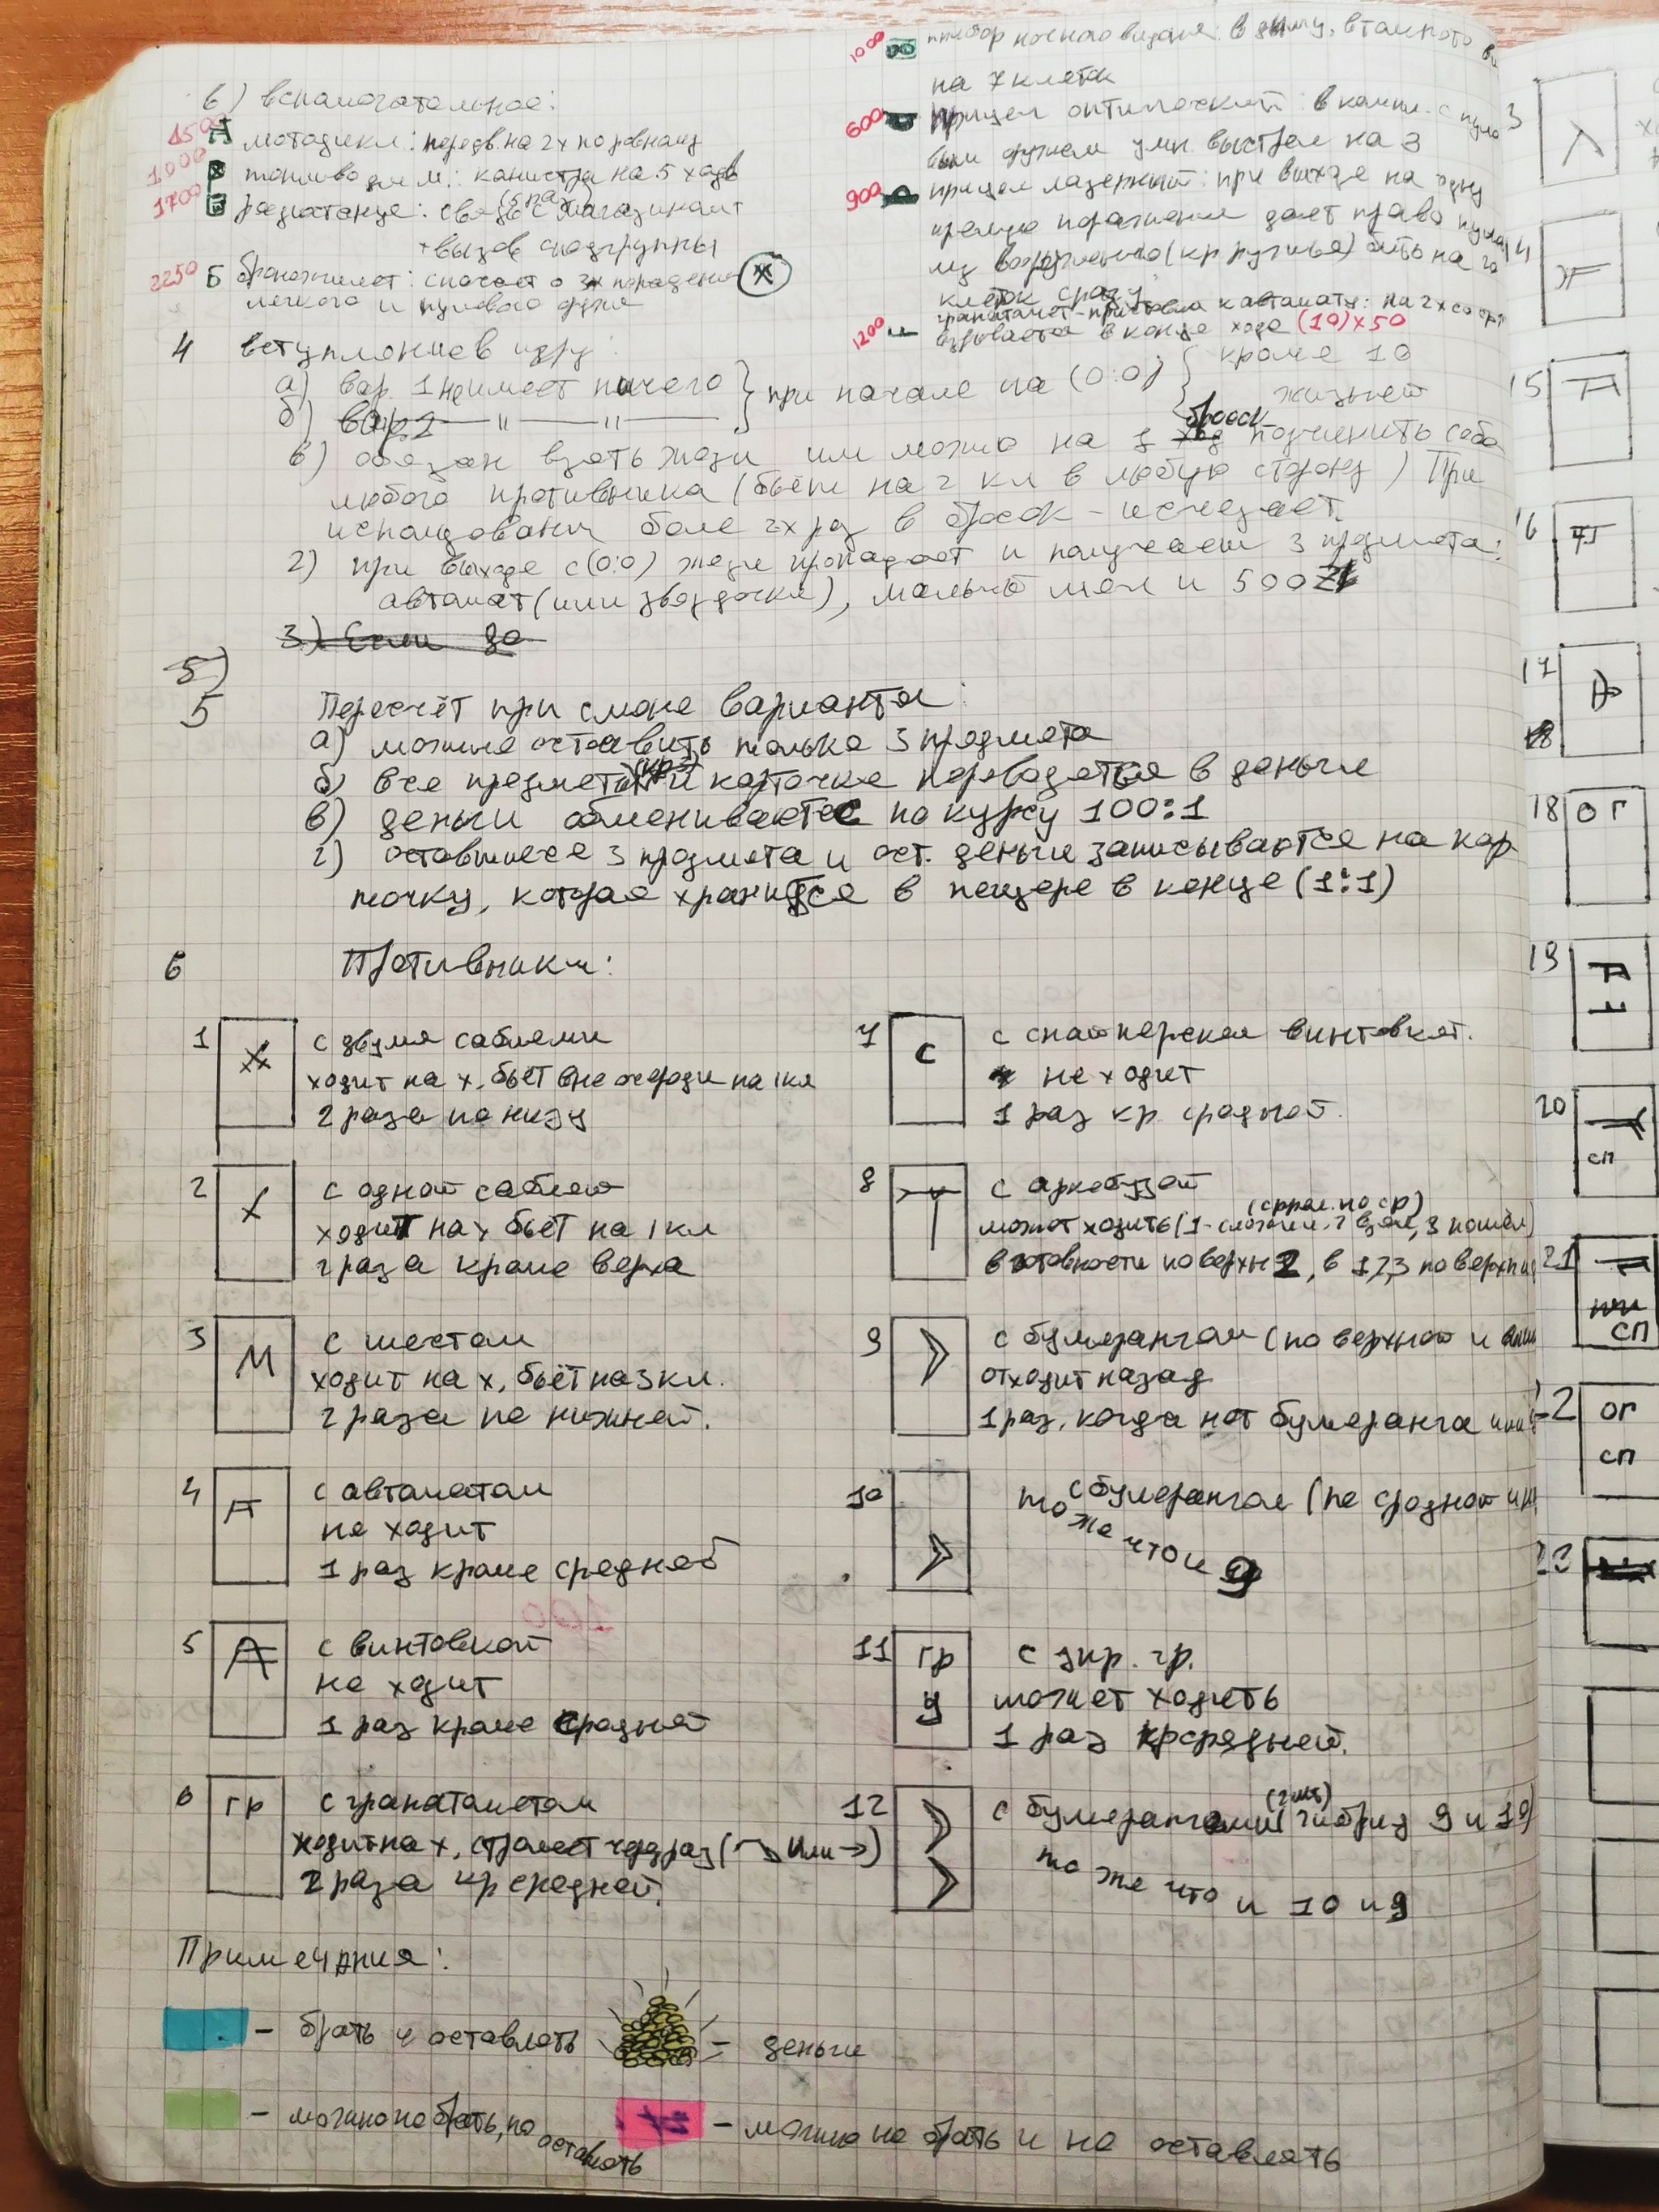 в) вспомогательное:
450 А мотоцикл: передв. на 2х по ровному
1000 топливо для м.: канистра на 5 ходов
1700 радиостанция: связь с магазином
(5 раз)
+ вызов подгруппы
2250 Б бронежилет: спасает о 3х
легкого и пулевого
1000 прибор ночного видения: в
на 7 клеток
600 прицел оптический: в компл. с
выстрел на 3
900 прицел лазерный: при выходе на одну
прямую поражения дает право
(кр ружья) бить на
клеток сразу
1200 гранатомёт-приставка к автомату: на 2х
взрывается в конце хода (10)х50
4 вступление в игру:
а) вар. 1 не имеет ничего } при начале на (0:0) { кроме 10
б) вар. 2 —— " —— " ——
жизней
в) обязан взять жезл им можно на 1 бросок подчинить себе
любого противника (бьёт на 2 кл в любую сторону) При
использовании боле 2х раз в бросок - исчезает.
г) при выходе с (0:0) жезл пропадает и получает 3 предмета:
автомат (или звёздочки), малый меч и 500
3) Если
5)
5 Пересчёт при смене варианта:
а) можно оставить только 3 предмета
б) все предметы (кр 3) и карточки переводятся в деньги
в) деньги обмениваются по курсу 100:1
г) оставшиеся 3 предмета и ост. деньги записываются на кар
точку, которая хранится в пещере в конце (1:1)
6 Противники:
1 с двумя саблями
ходит на х, бьёт вне очереди на 1кл
2 раза по низу
2 Х с одной саблей
ходит на х бьёт на 1 кл
2 раза кроме верха
3 М с шестом
ходит на х, бьёт на 3 кл.
2 раза по нижней.
4 с автоматом
не ходит
1 раз кроме средней
5 А с винтовкой
не ходит
1 раз кроме средней
6 гр с гранатометом
ходит на х, стреляет через раз (↘ или →)
2 раза кр средней.
7 С с снайперской винтовкой.
не ходит
1 раз кр. средней.
8 с аркебузой
(стрел. по ср)
может ходить (1- 2 взял, 3 пошёл)
в готовности по верхн 2, в 1,2,3 по верхн
9 с бумерангом (по верхней и
отходит назад
1 раз, когда нет бумеранга
10 с бумерангом (по средней и
то же что и 9
11 гр у с укр. гр.
может ходить
1 раз кр средней.
12 с бумерангами (2 шт) гибрид 9 и 10
то же что и 10 и 9
Примечания:
– брать и оставлять
– деньги
– можно не брать, но оставлять
– можно не брать и не оставлять
3
15
16
17
18 ог
19
20 сп
21 сп
ог
сп